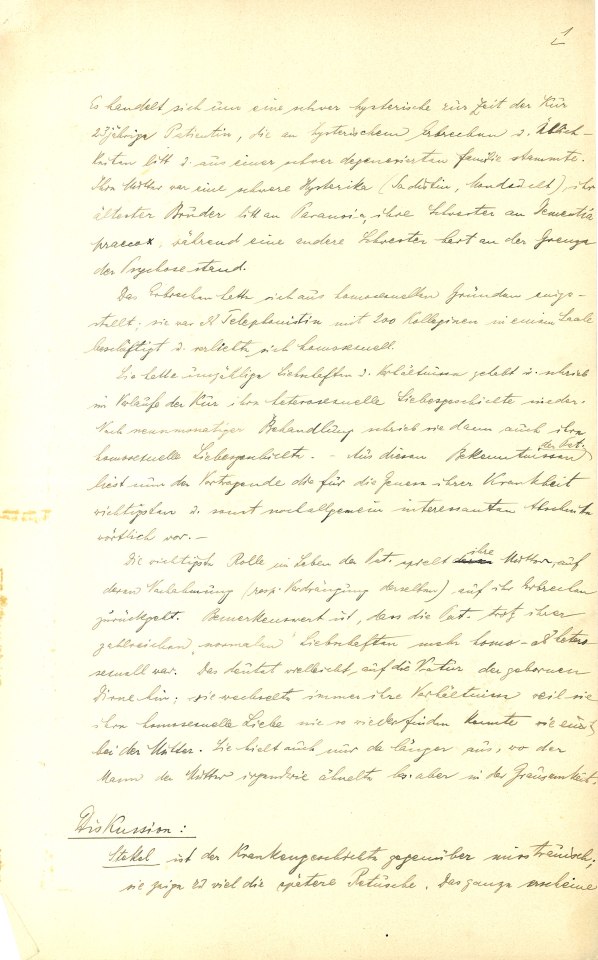 1
Es handelt sich um eine schwer hysterische zur Zeit der Kur
23jährige Patientin, die an hysterischem Erbrechen u. Üblich-
keiten litt u. aus einer schwer degenerierten Familie stammte.
Ihre Mutter war eine schwere Hysterika (Sadistin, ihr
ältester Bruder litt an Paranoia, ihre Schwester an Dementia
praecox, während eine andere Schwester hart an der Grenze
der Psychose stand.
Das Erbrechen hatte sich aus homosexuellen Gründen einge-
stellt; sie war Telephonistin mit 200 Kolleginen in einem Saale
beschäftigt u. verliebte sich homosexuell.
Sie hatte unzählige Liebschaften u. Verhältnisse gehabt u. schrieb
im Verlaufe der Kur ihre heterosexuelle Liebesgeschichte nieder.
Nach neunmonatiger Behandlung schrieb sie dann auch ihre
homosexuelle Liebesgeschichte. - Aus diesen Bekenntnissen der Pat.
liest nun der Vortragende die für die Genese ihrer Krankheit
wichtigsten u. sonst noch allgemein interessanten Abschnitte
wörtlich vor. -
Die wichtigste Rolle im Leben der Pat. spielt ihre Mutter, auf
deren Nachahmung (resp. Verdrängung derselben) auf ihr Erbrechen
zurückgeht. Bemerkenswert ist, dass die Pat. trotz ihrer
zahlreichen, normalen Liebschaften mehr homo- als hetero-
sexuell war. Das deutet vielleicht auf die Natur der gebornen
Dirne hin; sie wechselte immer ihre Verhältnisse weil sie
ihre homosexuelle Liebe nie so wiederfinden konnte wie einst
bei der Mutter. Sie hielt auch nur da länger aus, wo der
Mann der Mutter irgendwie ähnelte bes. aber in der Grausamkeit.
Diskussion:
Stekel ist der Krankengeschichte gegenüber misstrauisch;
sie zeige zu viel die spätere Retusche. Das ganze erscheine